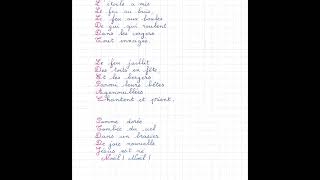 L'étoile a mis
Le feu au bois,
Le feu aux boules
De gui qui roulent
Dans les vergers
Tout enneigés.
Le feu jaillit
Des toits en fête,
Et les bergers
Parmi leurs bêtes
Agenouillées
Chantent et prient.
Pomme dorée
Tombée du ciel
Dans un brasier
De joie nouvelle
Jésus est né
Noël! Noël!